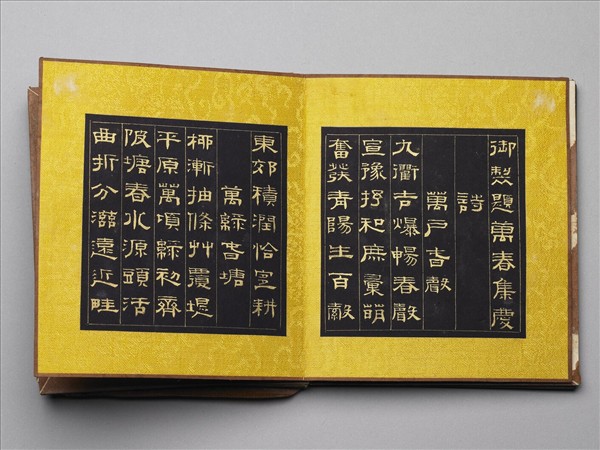 御製題萬春集慶
詩
萬戶旾聲
九衢吉爆暢春聲
宣豫抒和庶彙萌
奮發青陽生百穀
東郊積潤恰宜耕
萬綠旾塘
柳漸抽條艸覆堤
平原萬頃綠初齊
陂塘春水源頭活
曲折分遠近畦